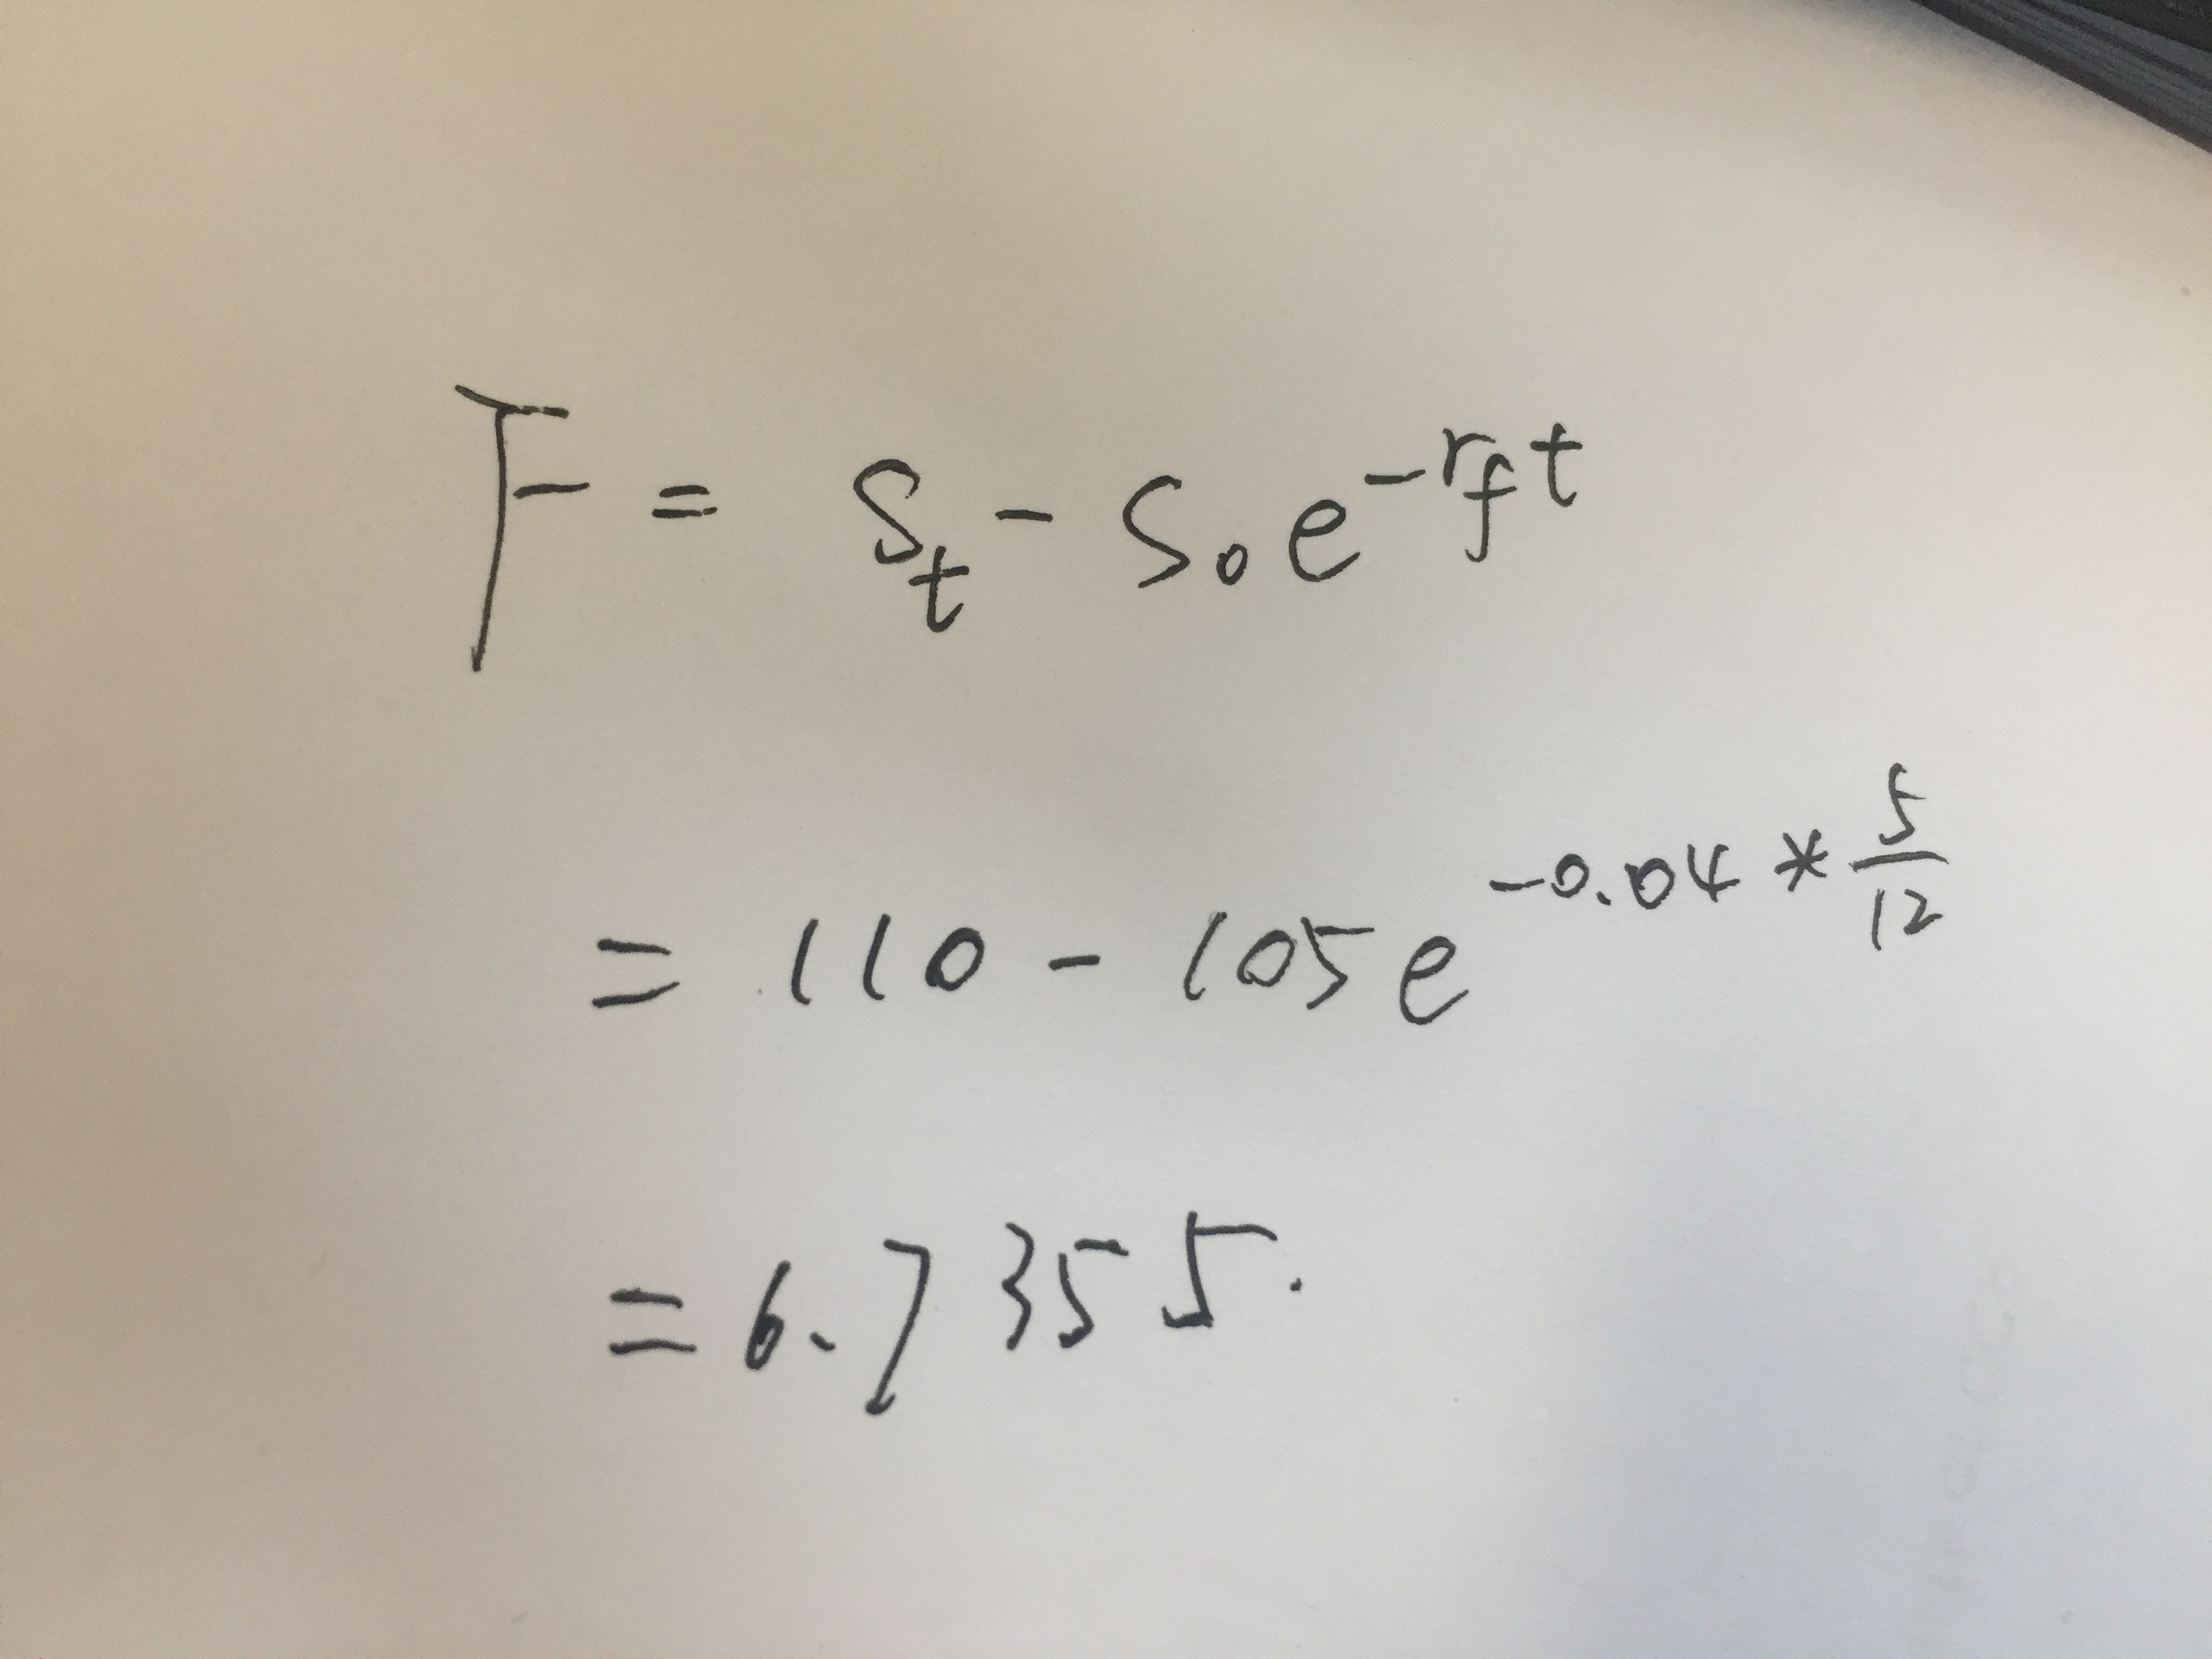 F = S_t - S_0 e^{-r_f t}
= 110 - 105 e^{-0.04 * 5/12}
= 6.7355.